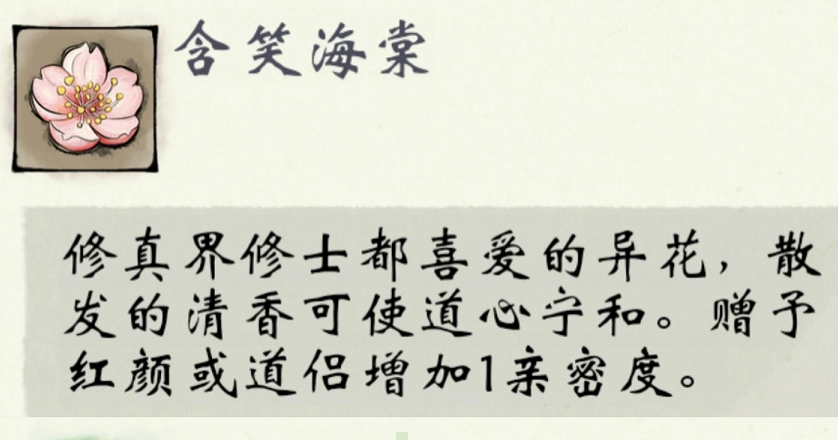 含笑海棠
修真界修士都喜爱的异花，散
发的清香可使道心宁和。赠予
红颜或道侣增加1亲密度。